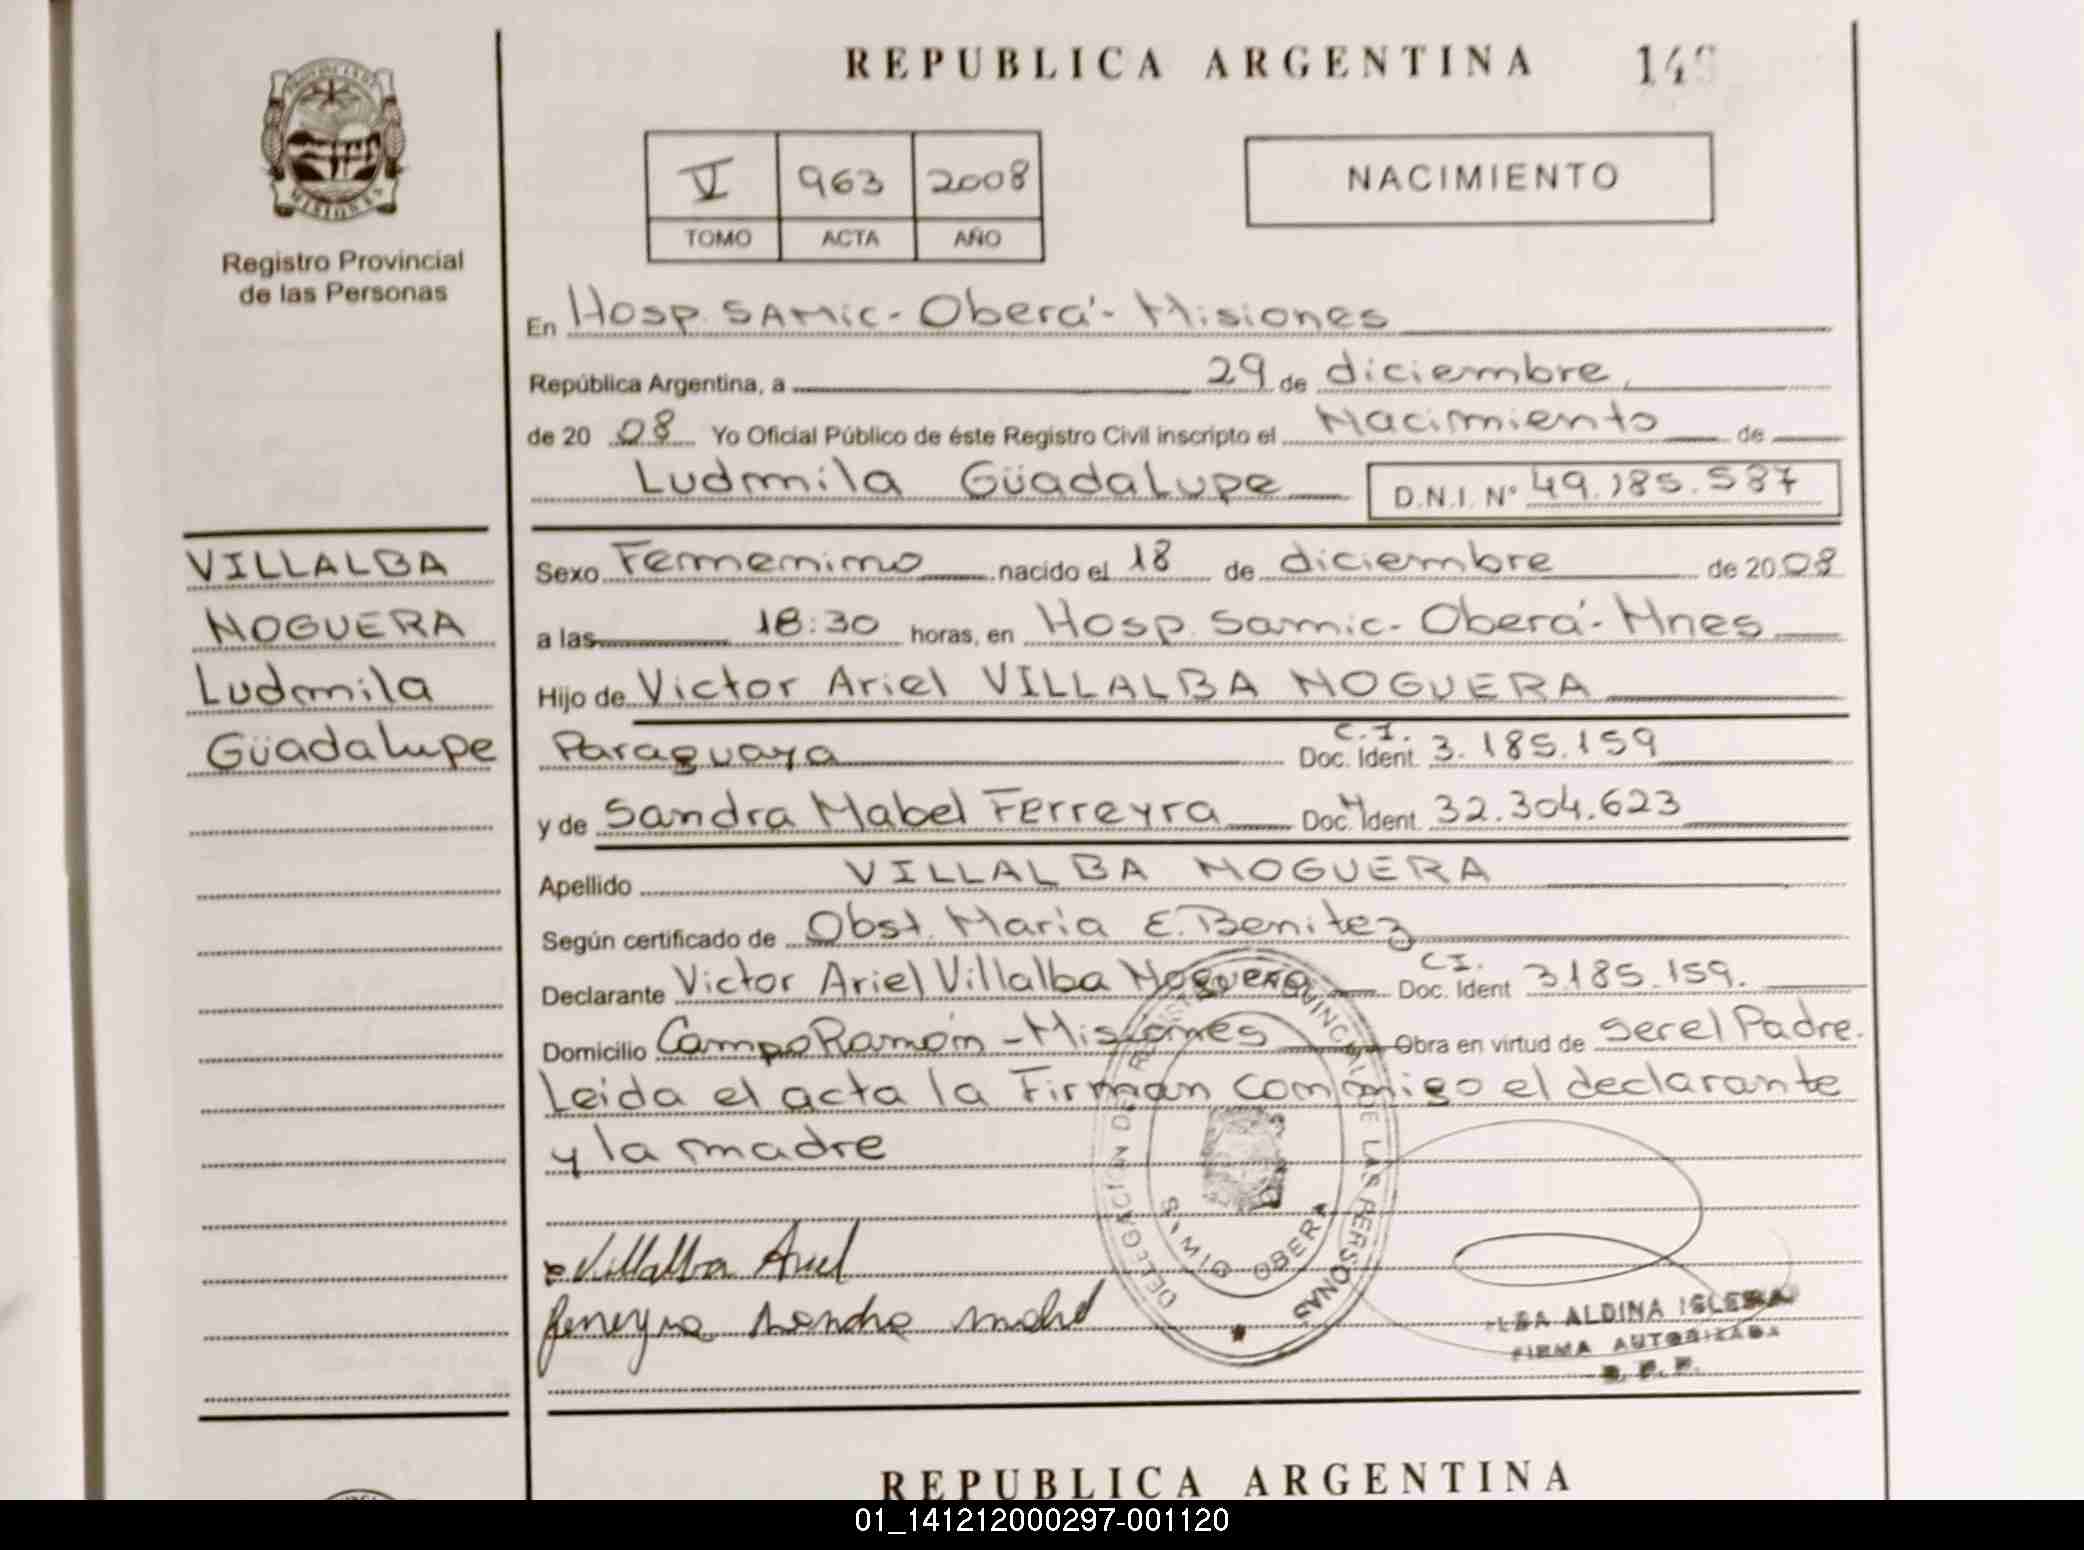 REPUBLICA ARGENTINA
PROVINCIA DE
MISIONES
Registro Provincial
de las Personas
V 963 2008
TOMO ACTA AÑO
NACIMIENTO
En Hosp. SAMic - Oberá - Misiones
República Argentina, a 29 de diciembre,
de 20 08 Yo Oficial Público de éste Registro Civil inscripto el Nacimiento de
Ludmila Güadalupe D.N.I. N° 49.185.587
VILLALBA
NOGUERA
Ludmila
Güadalupe
Sexo Femenino nacido el 18 de diciembre de 20 08
a las 18:30 horas, en Hosp. Samic - Oberá - Mnes
Hijo de Victor Ariel VILLALBA NOGUERA
Paraguaya C.I. Doc. Ident. 3.185.159
y de Sandra Mabel Ferreyra Doc. Ident. 32.304.623
Apellido VILLALBA NOGUERA
Según certificado de Obst. María E. Benitez
Declarante Victor Ariel Villalba Noguera C.I. Doc. Ident 3.185.159.
Domicilio Campo Ramón - Misiones Obra en virtud de ser el Padre.
Leída el acta la Firman conmigo el declarante
y la madre
Villalba Ariel
Ferreyra Sandra Mabel
DELEGACION DEL REGISTRO PROVINCIAL DE LAS PERSONAS
OBERA
ALDINA IGLESIA
FIRMA AUTORIZADA
REPUBLICA ARGENTINA
01_141212000297-001120